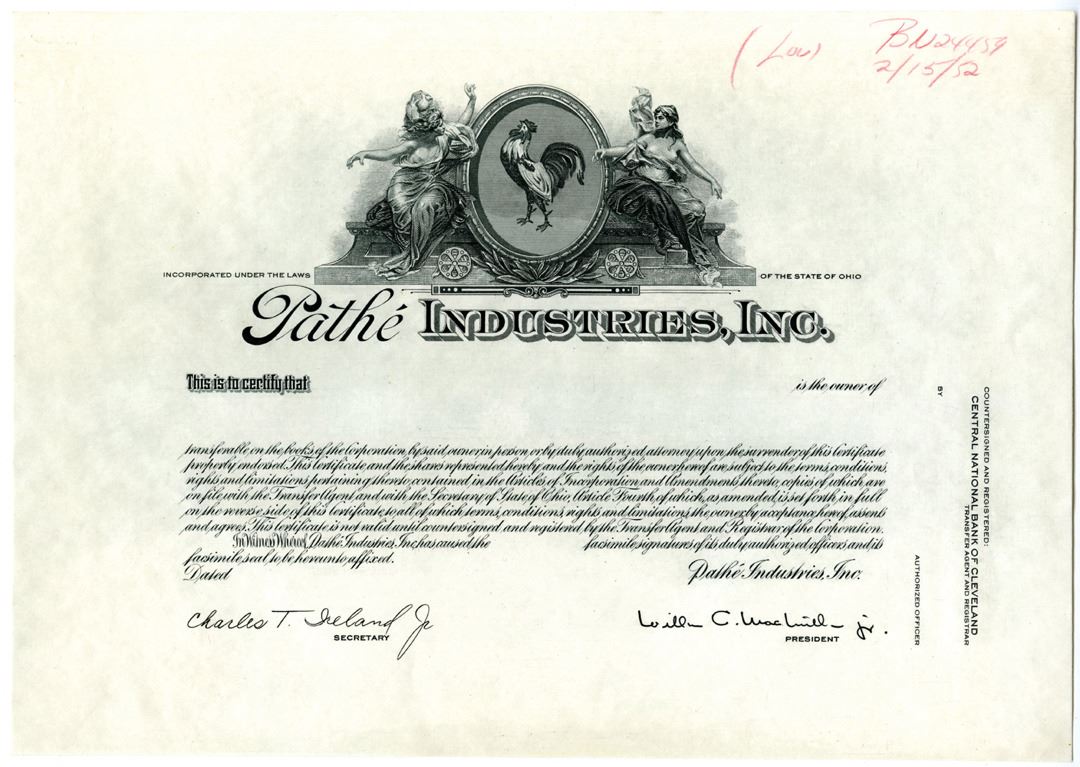 (Lou)
BN24459
2/15/52
INCORPORATED UNDER THE LAWS
OF THE STATE OF OHIO
Pathé INDUSTRIES, INC.
This is to certify that
is the owner of
transferable on the books of the Corporation by said owner in person or by duly authorized attorney upon the surrender of this Certificate
properly endorsed. This Certificate and the shares represented hereby and the rights of the owner hereof are subject to the terms, conditions,
rights and limitations pertaining thereto contained in the Articles of Incorporation and Amendments thereto, copies of which are
on file with the Transfer Agent and with the Secretary of State of Ohio, Article Fourth of which, as amended, is set forth in full
on the reverse side of this Certificate to all of which terms, conditions, rights and limitations the owner, by acceptance hereof, assents
and agrees. This Certificate is not valid until countersigned and registered by the Transfer Agent and Registrar of the Corporation.
In Witness Whereof, Pathé Industries, Inc. has caused the
facsimile signatures of its duly authorized officers, and its
facsimile seal to be hereunto affixed.
Dated
Pathé Industries, Inc.
Charles T. Ireland Jr
SECRETARY
William C. MacMillen jr.
PRESIDENT
COUNTERSIGNED AND REGISTERED:
CENTRAL NATIONAL BANK OF CLEVELAND
TRANSFER AGENT AND REGISTRAR
BY
AUTHORIZED OFFICER